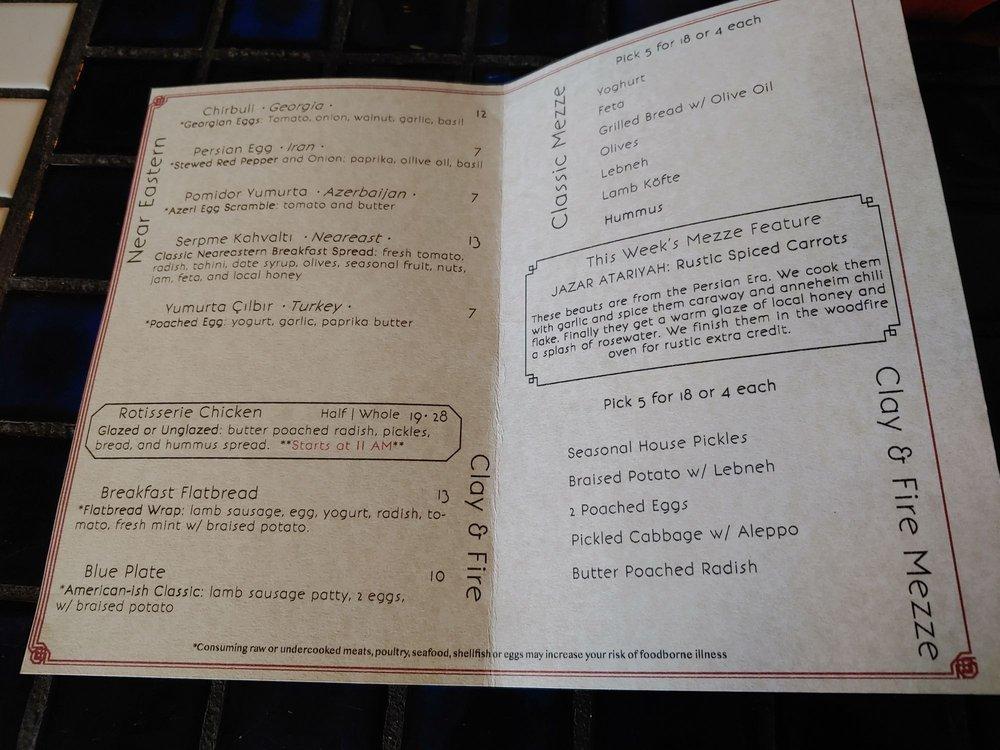 Near Eastern
Chirbuli · Georgia · 12
*Georgian Eggs: Tomato, onion, walnut, garlic, basil
Persian Egg · Iran · 7
*Stewed Red Pepper and Onion: paprika, oilive oil, basil
Pomidor Yumurta · Azerbaijan · 7
*Azeri Egg Scramble: tomato and butter
Serpme Kahvaltı · Neareast · 13
Classic Neareastern Breakfast Spread: fresh tomato,
radish, tahini, date syrup, olives, seasonal fruit, nuts,
jam, feta, and local honey
Yumurta Çılbır · Turkey · 7
*Poached Egg: yogurt, garlic, paprika butter
Rotisserie Chicken Half | Whole 19 · 28
Glazed or Unglazed: butter poached radish, pickles,
bread, and hummus spread. **Starts at 11 AM**
Clay & Fire
Breakfast Flatbread 13
*Flatbread Wrap: lamb sausage, egg, yogurt, radish, to-
mato, fresh mint w/ braised potato.
Blue Plate 10
*American-ish Classic: lamb sausage patty, 2 eggs,
w/ braised potato
Classic Mezze
Pick 5 for 18 or 4 each
Yoghurt
Feta
Grilled Bread w/ Olive Oil
Olives
Lebneh
Lamb Köfte
Hummus
This Week's Mezze Feature
JAZAR ATARIYAH: Rustic Spiced Carrots
These beauts are from the Persian Era. We cook them
with garlic and spice them caraway and anneheim chili
flake. Finally they get a warm glaze of local honey and
a splash of rosewater. We finish them in the woodfire
oven for rustic extra credit.
Clay & Fire Mezze
Pick 5 for 18 or 4 each
Seasonal House Pickles
Braised Potato w/ Lebneh
2 Poached Eggs
Pickled Cabbage w/ Aleppo
Butter Poached Radish
*Consuming raw or undercooked meats, poultry, seafood, shellfish or eggs may increase your risk of foodborne illness